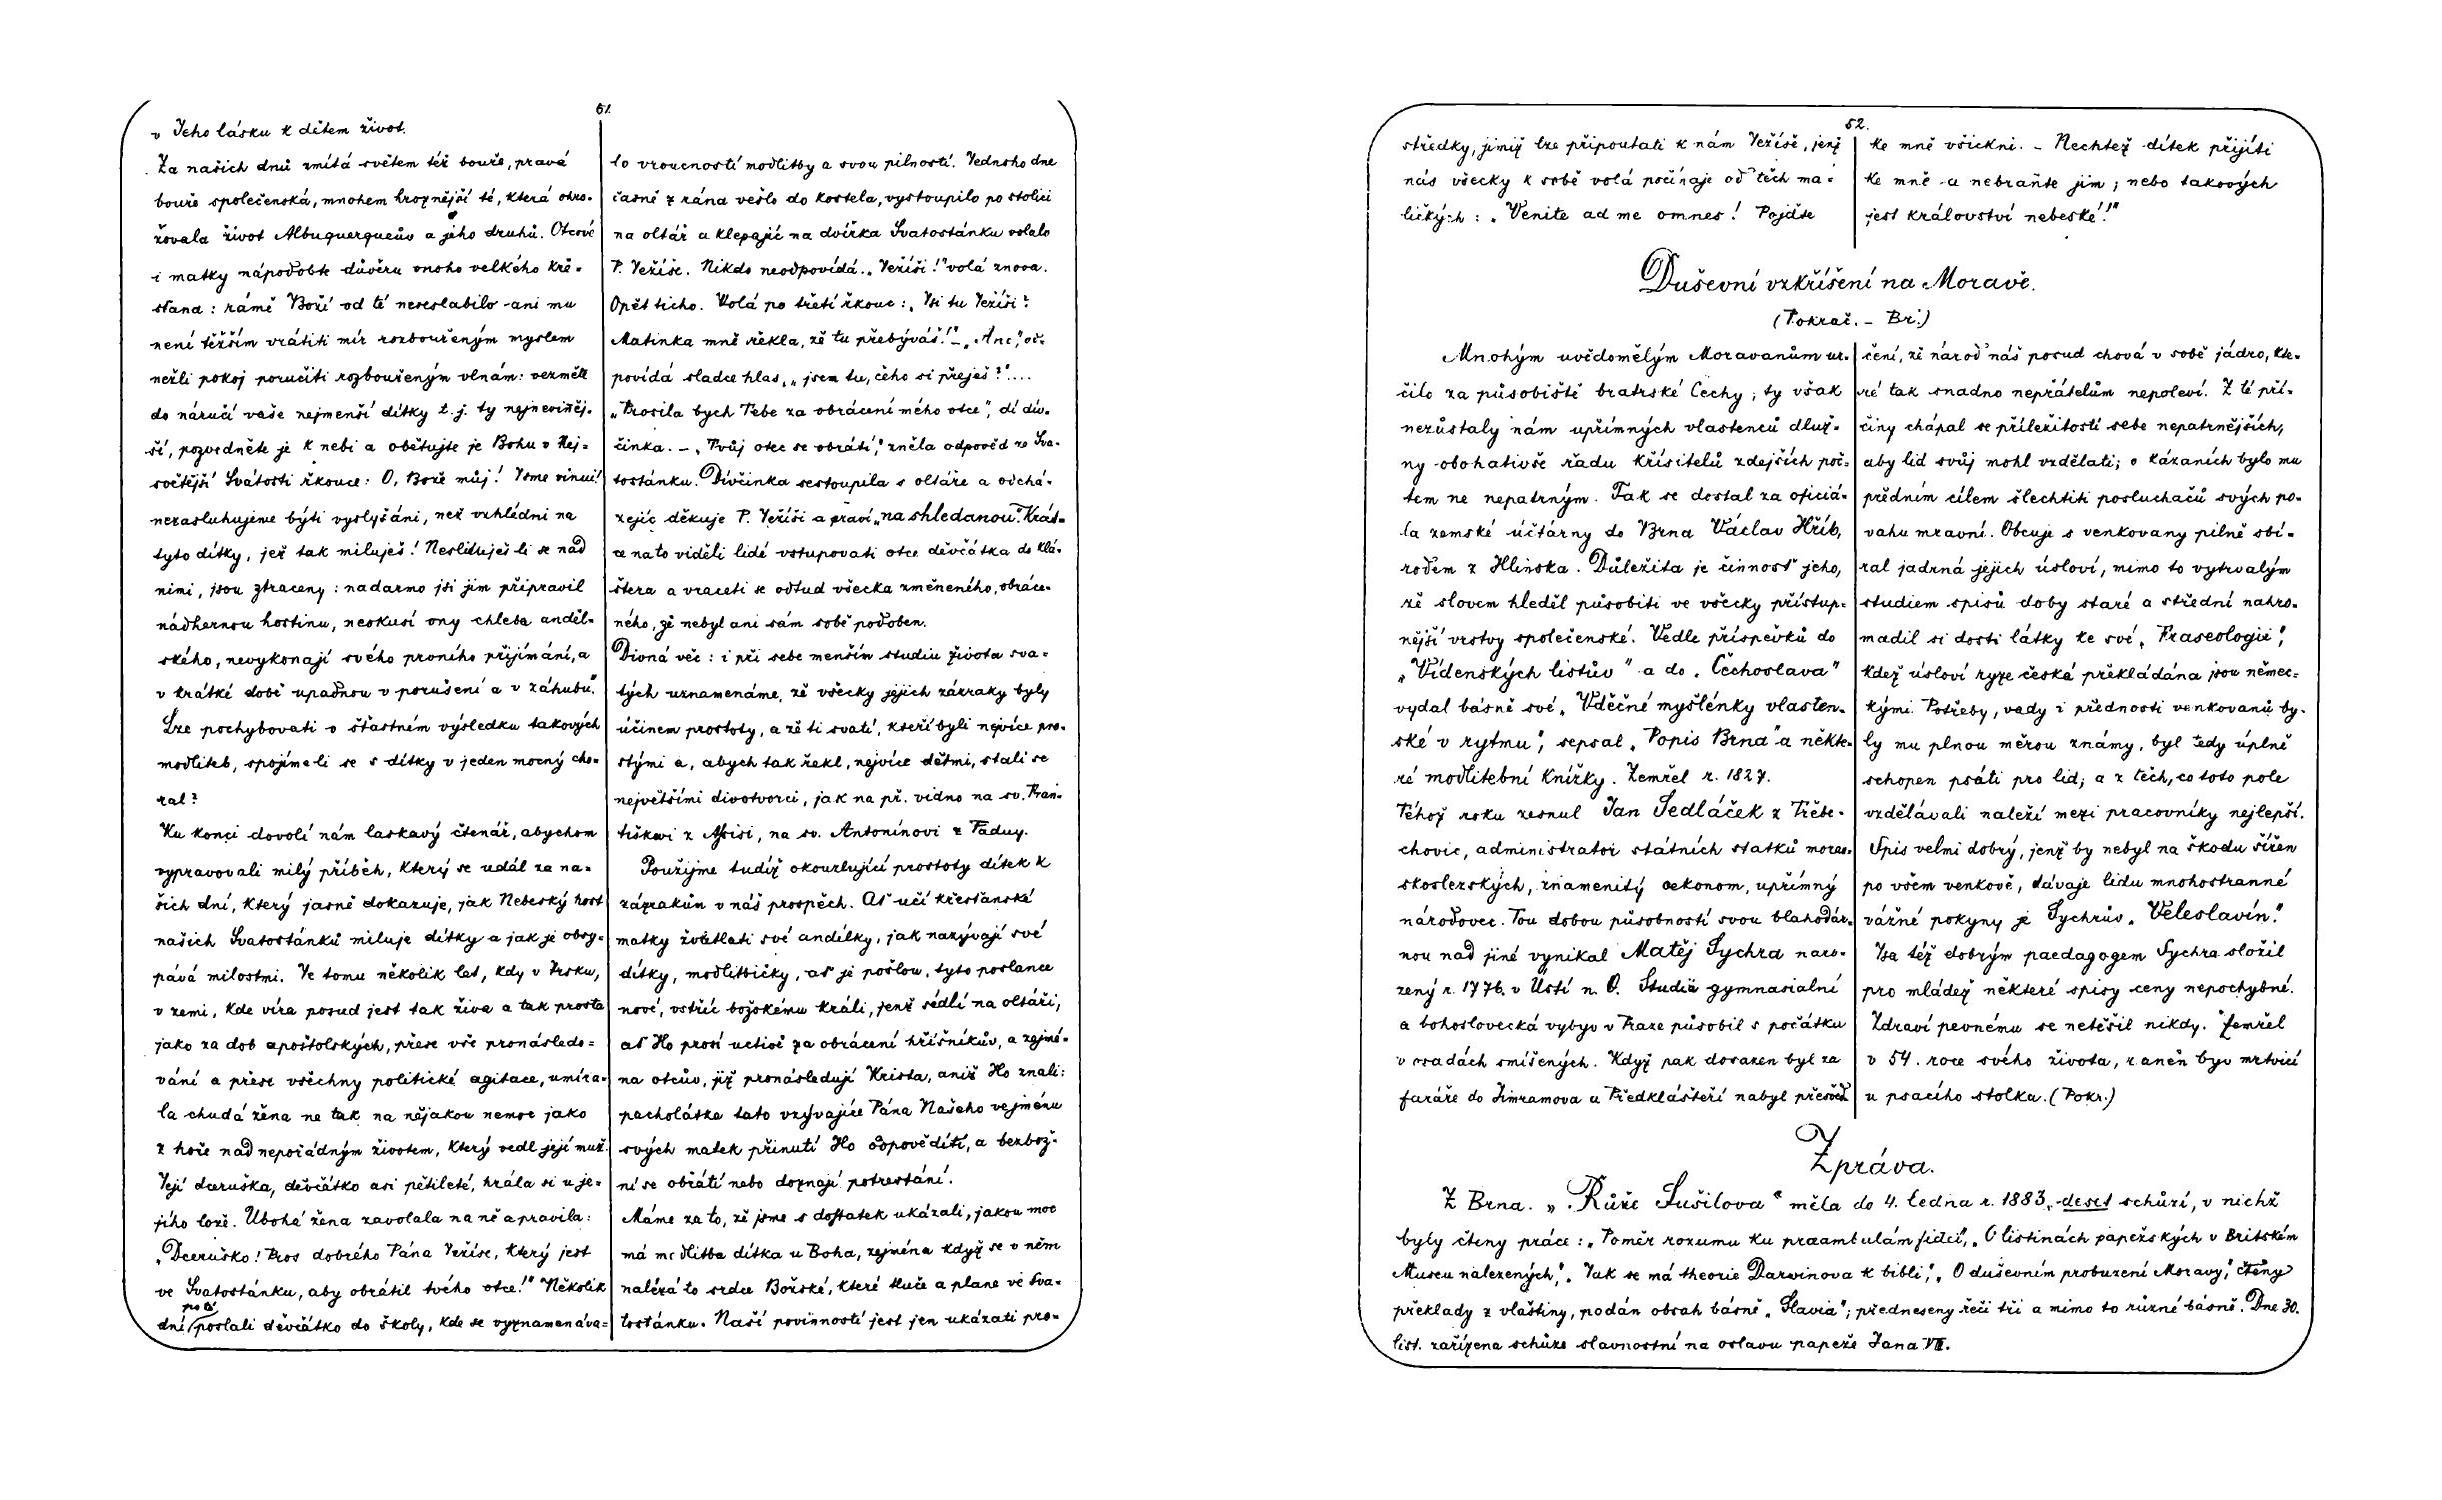 51.
v Jeho lásku k dětem život.
Za našich dnů zmítá světem též bouře, pravá
bouře společenská, mnohem hroznější té, která ohro-
žovala život Albuquerqueův a jeho druhů. Otcové
i matky nápodobte důvěru onoho velkého kře-
sťana: rámě Boží od té neseslabilo ani mu
není těžším vrátiti mír rozbouřeným myslem
nežli pokoj poručiti rozbouřeným vlnám: vezměte
do náručí vaše nejmenší dítky t. j. ty nejnevinněj-
ší, pozvedněte je k nebi a obětujte je Bohu v Nej-
světější Svátosti řkouce: O, Bože můj! Jsme vinni!
nezasluhujeme býti vyslyšáni, než vzhlédni na
tyto dítky, jež tak miluješ! Neslituješ-li se nad
nimi, jsou ztraceny: nadarmo jsi jim připravil
nádhernou hostinu, neokusí ony chleba anděl-
ského, nevykonají svého prvního přijímání, a
v krátké době upadnou v porušení a v záhubu."
Lze pochybovati o šťastném výsledku takových
modliteb, spojíme-li se s dítky v jeden mocný cho-
ral?
Ku konci dovolí nám laskavý čtenář, abychom
vypravovali milý příběh, který se udál za na-
šich dní, který jasně dokazuje, jak Nebeský host
našich Svatostánků miluje dítky a jak je obsy-
pává milostmi. Je tomu několik let, kdy v Irsku,
v zemi, kde víra posud jest tak živa a tak prosta
jako za dob apoštolských, přese vše pronásledo-
vání a přese všechny politické agitace, umíra-
la chudá žena ne tak na nějakou nemoc jako
z hoře nad nepořádným životem, který vedl její muž.
Její dceruška, děvčátko asi pětileté, hrála si u je-
jího lože. Ubohá žena zavolala na ně a pravila:
„Dceruško! Pros dobrého Pána Ježíše, který jest
ve Svatostánku, aby obrátil tvého otce!" Několik
dní poté poslali děvčátko do školy, kde se vyznamenáva-
lo vroucností modlitby a svou pilností. Jednoho dne
časně z rána vešlo do kostela, vystoupilo po stolici
na oltář a klepajíc na dvířka Svatostánku volalo
P. Ježíše. Nikdo neodpovídá. „Ježíši!" volá znova.
Opět ticho. Volá po třetí řkouc: „Jsi tu Ježíši?
Matinka mně řekla, že tu přebýváš!" – „Ano," od-
povídá sladce hlas, „jsem tu, čeho si přeješ?"....
„Prosila bych Tebe za obrácení mého otce", dí dív-
činka. – „Tvůj otec se obrátí," zněla odpověď ze Sva-
tostánku. Dívčinka sestoupila s oltáře a odchá-
zejíc děkuje P. Ježíši a praví „na shledanou". Krát-
ce na to viděli lidé vstupovati otce děvčátka do klá-
štera a vraceti se odtud všecka změneného, obráce-
ného, že nebyl ani sám sobě podoben.
Divná věc: i při sebe menším studiu života sva-
tých uznamenáme, že všecky jejich zázraky byly
účinem prostoty, a že ti svatí, kteří byli nejvíce pro-
stými a, abych tak řekl, nejvíce dětmi, stali se
největšími divotvorci, jak na př. vidno na sv. Fran-
tiškovi z Assisi, na sv. Antonínovi z Paduy.
Použijme tudíž okouzlující prostoty dítek k
zázrakům v náš prospěch. Ať učí křesťanské
matky žvatlati své andílky, jak nazývají své
dítky, modlitbičky, ať je pošlou, tyto poslance
nové, vstříc božskému králi, jenž sedlí na oltáři,
ať Ho prosí uctivě za obrácení hříšníkův, a zejmé-
na otcův, již pronásledují Krista, aniž Ho znali:
pacholátka tato vzývajíce Pána Našeho ve jménu
svých matek přinutí Ho odpověděti, a bezbož-
ní se obrátí nebo doznají potrestání.
Máme za to, že jsme s dostatek ukázali, jakou moc
má modlitba dítka u Boha, zejména když se v něm
nalézá to srdce Božské, které tluče a plane ve Sva-
tostánku. Naší povinností jest jen ukázati pro-
52.
středky, jimiž lze připoutati k nám Ježíše, jenž
nás všecky k sobě volá počínaje od těch ma-
ličkých: „Venite ad me omnes! Pojďte
ke mně všickni. – Nechtež dítek přijíti
ke mně a nebraňte jim; nebo takových
jest království nebeské!"
Duševní vzkříšení na Moravě.
(Pokrač. – Br.)
Mnohým uvědomělým Moravanům ur-
čilo za působiště bratrské Čechy; ty však
nezůstaly nám upřímných vlastenců dluž-
ny obohativše řadu křisitelů zdejších poč-
tem ne nepatrným. Tak se dostal za oficiá-
la zemské účtárny do Brna Václav Hříb,
rodem z Hlinska. Důležita je činnosť jeho,
že slovem hleděl působiti ve všecky přístup-
nější vrstvy společenské. Vedle příspěvků do
„Vídenských listův" a do „Čechoslava"
vydal básně své „Vděčné myšlénky vlasten-
ské v rytmu", sepsal „Popis Brna" a někte-
ré modlitební knížky. Zemřel r. 1827.
Téhož roku zesnul Jan Sedláček z Třebe-
chovic, administrator státních statků morav-
skoslezských, znamenitý oekonom, upřímný
národovec. Tou dobou působností svou blahodár-
nou nad jiné vynikal Matěj Sychra naro-
zený r. 1776. v Ústí n. O. Studia gymnasialní
a bohoslovecká vybyv v Praze působil s počátku
v osadách smíšených. Když pak dosazen byl za
faráře do Jimramova u Předklášteří nabyl přesvěd
čení, že národ náš posud chová v sobě jádro, kte-
ré tak snadno nepřátelům nepoleví. Z té pří-
činy chápal se příležitosti sebe nepatrnějších,
aby lid svůj mohl vzdělati; v kázaních bylo mu
předním cílem šlechtiti posluchačů svých po-
vahu mravní. Obcuje s venkovany pilně sbí-
ral jadrná jejich úsloví, mimo to vytrvalým
studiem spisů doby staré a střední nahro-
madil si dosti látky ke své „Fraseologii",
kdež úsloví ryze česká překládána jsou němec-
kými. Potřeby, vady i přednosti venkovanů by-
ly mu plnou měrou známy, byl tedy úplně
schopen psáti pro lid; a z těch, co toto pole
vzdělávali naleží mezi pracovníky nejlepší.
Spis velmi dobrý, jenž by nebyl na škodu šířen
po všem venkově, dávaje lidu mnohostranné
vážné pokyny je Sychrův „Veleslavín."
Jsa též dobrým paedagogem Sychra složil
pro mládež některé spisy ceny nepochybné.
Zdraví pevnému se netěšil nikdy. Zemřel
v 54. roce svého života, raněn byv mrtvicí
u psacího stolka. (Pokr.)
Zpráva.
Z Brna. „Růže Sušilova" měla do 4. ledna r. 1883. deset schůzí, v nichž
byly čteny práce: „Poměr rozumu ku praeambulám fidei", „O listinách papežských v Britském
Museu nalezených", „Jak se má theorie Darwinova k bibli", „O duševním probuzení Moravy", čteny
překlady z vlaštiny, podán obsah básně „Slavia"; předneseny řeči tři a mimo to různé básně. Dne 30.
list. zařízena schůze slavnostní na oslavu papeže Jana VIII.